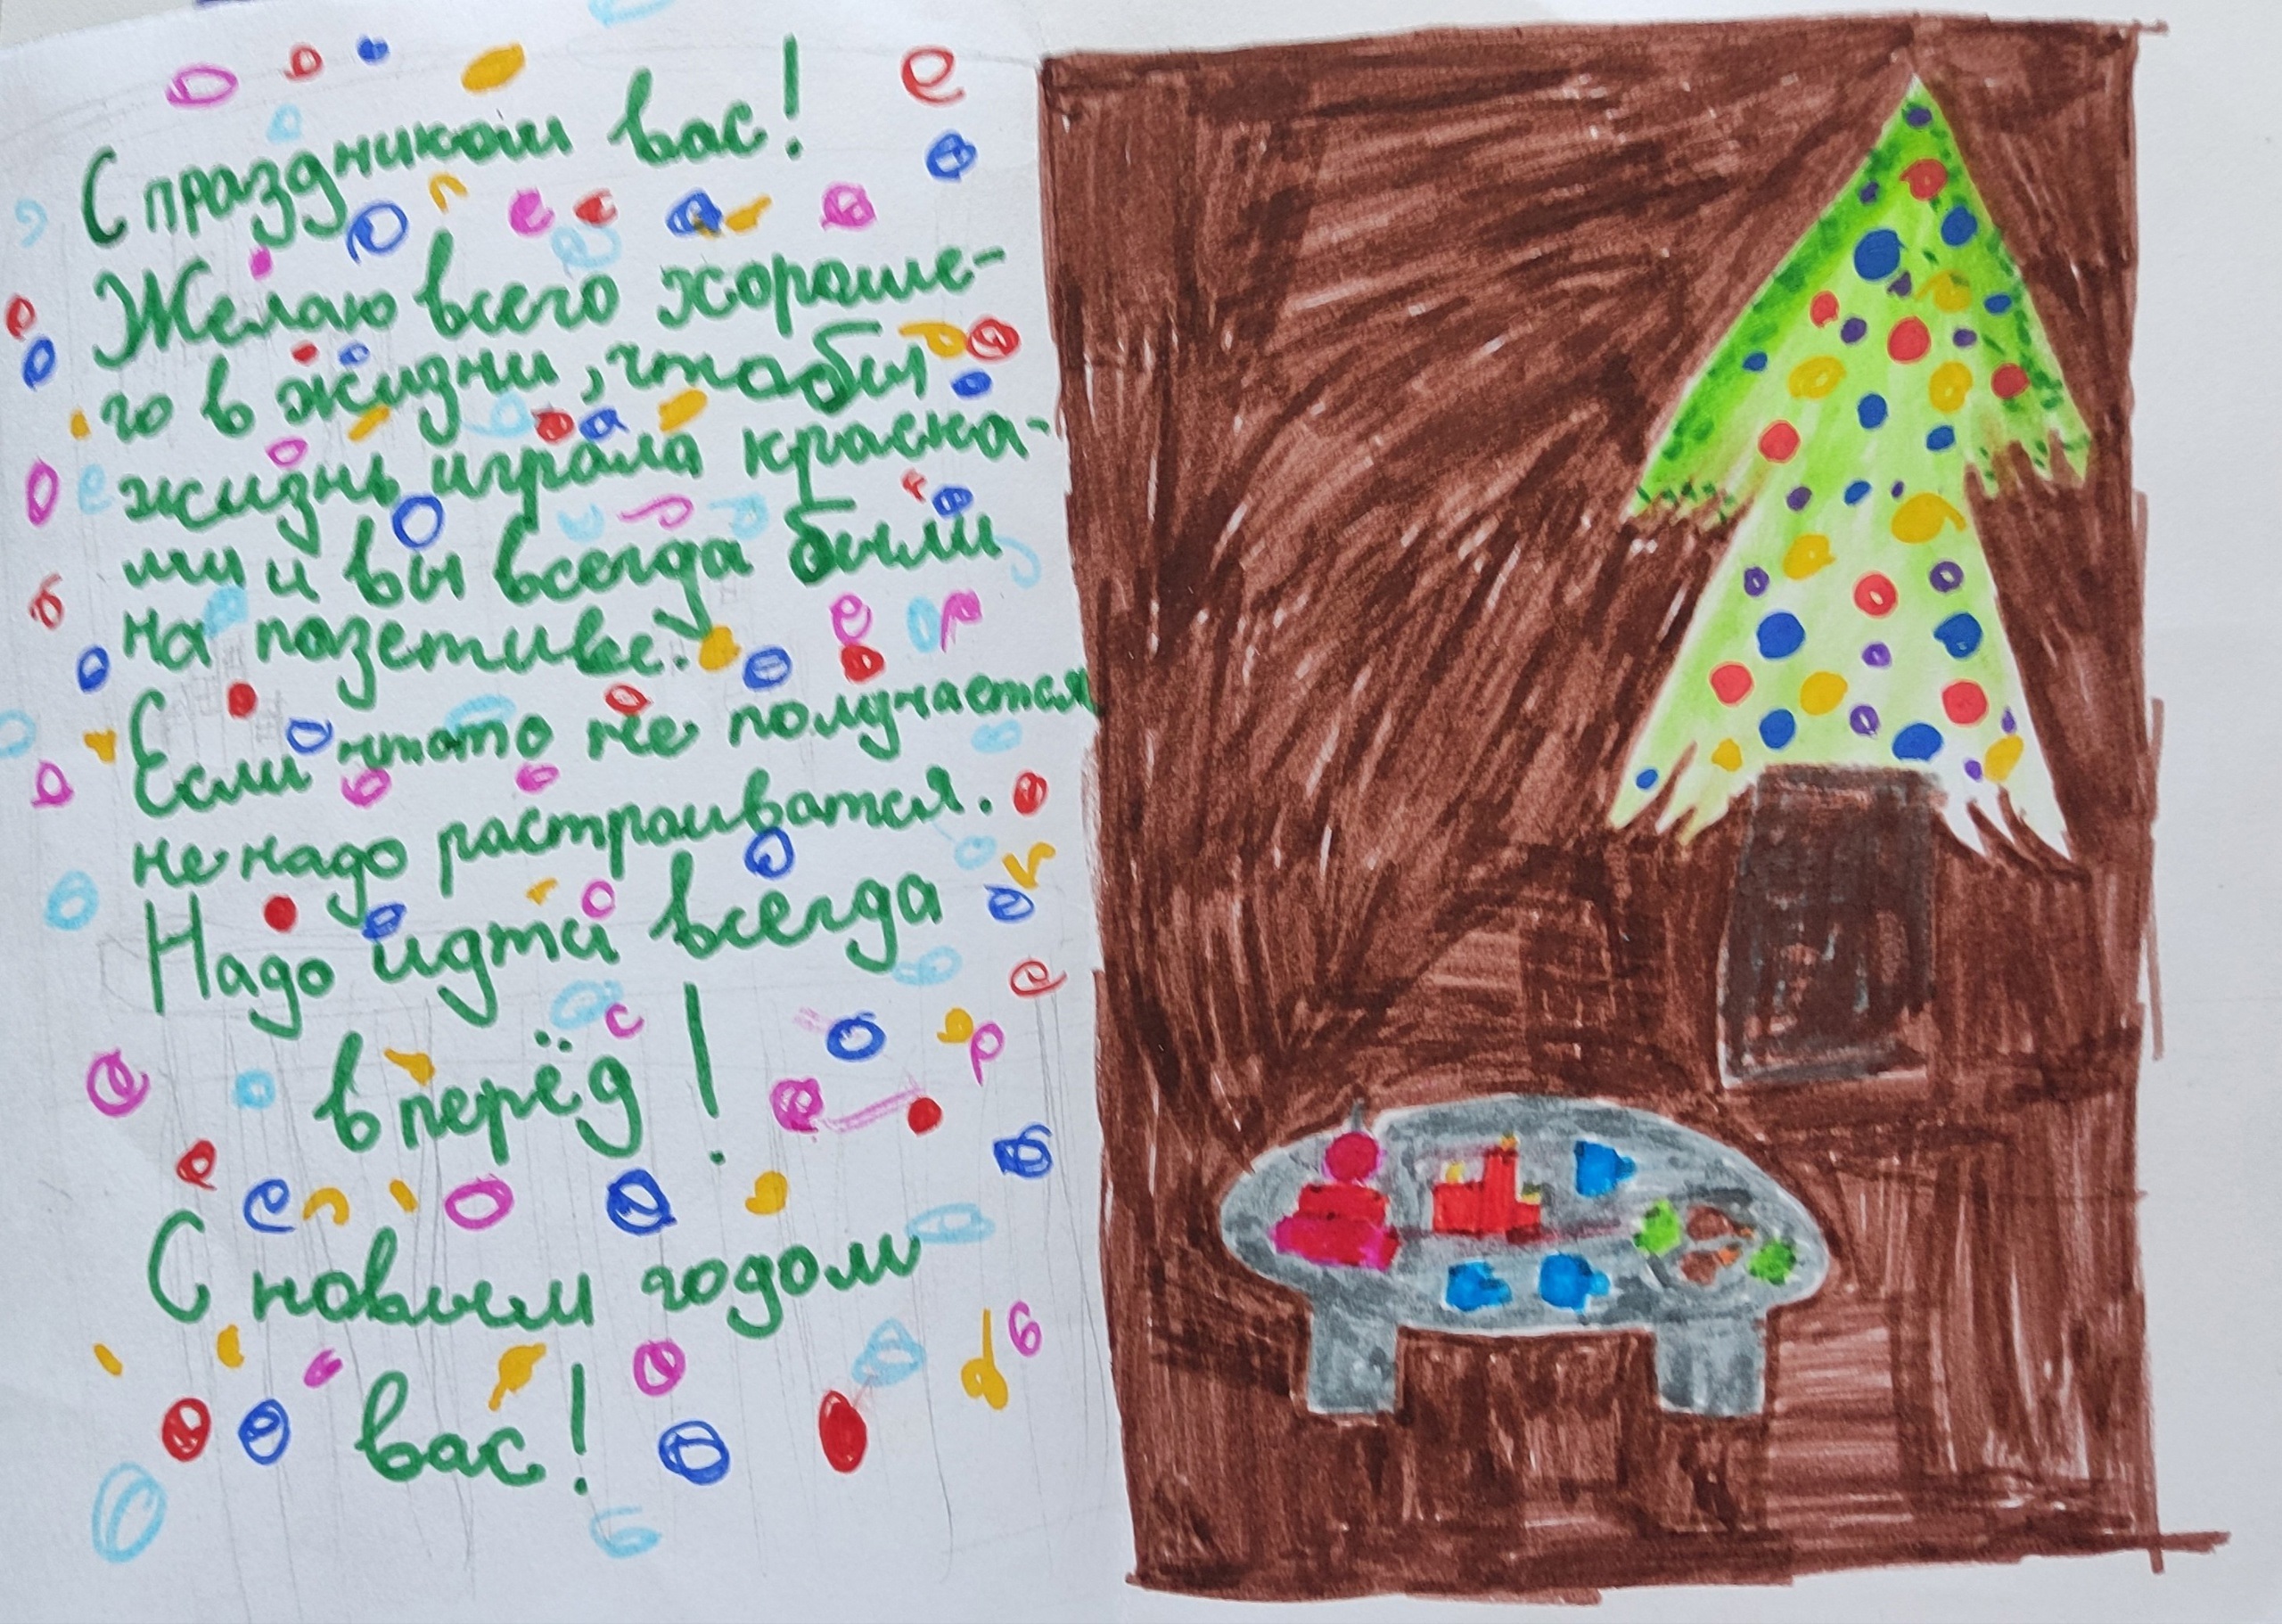 С праздником вас!
Желаю всего хороше-
го в жизни, чтобы
жизнь играла краска-
ми и вы всегда были
на позетиве.
Если что-то не получается
не надо растраиватся.
Надо идти всегда
вперёд!
С новым годом
вас!